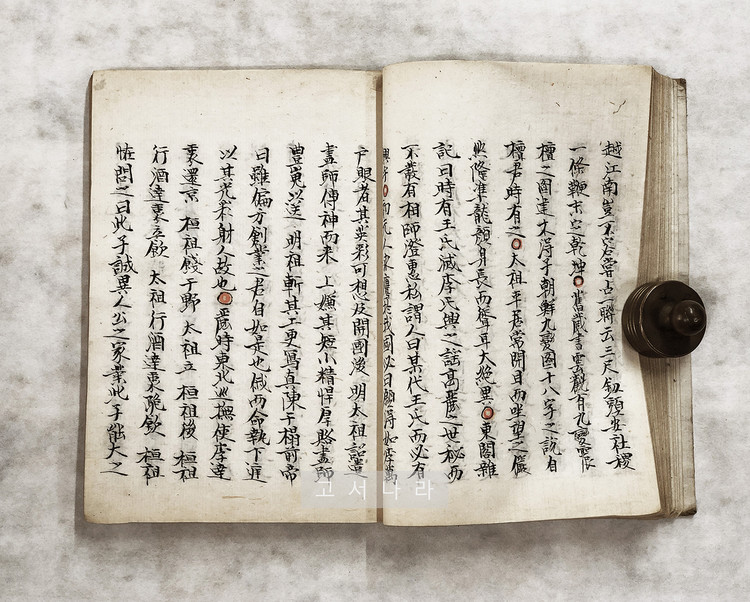 越江南豈不容嘗占一聯云三尺劒頭安社稷
一條鞭末定乾坤舊藏書雲觀有九變震
檀之圖建木得子朝鮮九變圖十八字之說自
檀君時有之太祖平居常閉目而坐望之儼
然隆準龍顔身長而聳耳大絶異東閣雜
記曰時有王氏滅李氏興之謠高麗之世秘而
不發有相師澄惠私謂人曰某代王氏而必有
我國必曰願得如李萬
户眼者其英彩可想及開國後 明太祖詔遣
畫師傳神而来 上嫌其短小精悍厚賂畫師
豊嵬以送 明祖斬其工更寫真陳于榻前帝
曰雖偏方創業之君自如是也俄而命執下遲
以其光釆射人故也麗時東北巡撫使李達
衷還京 桓祖餞于野 太祖立 桓祖後 桓祖
行酒達衷立飲 太祖行酒達衷跪飲 桓祖
恠問之曰此子誠異人公之家業此子能大之
고서나라